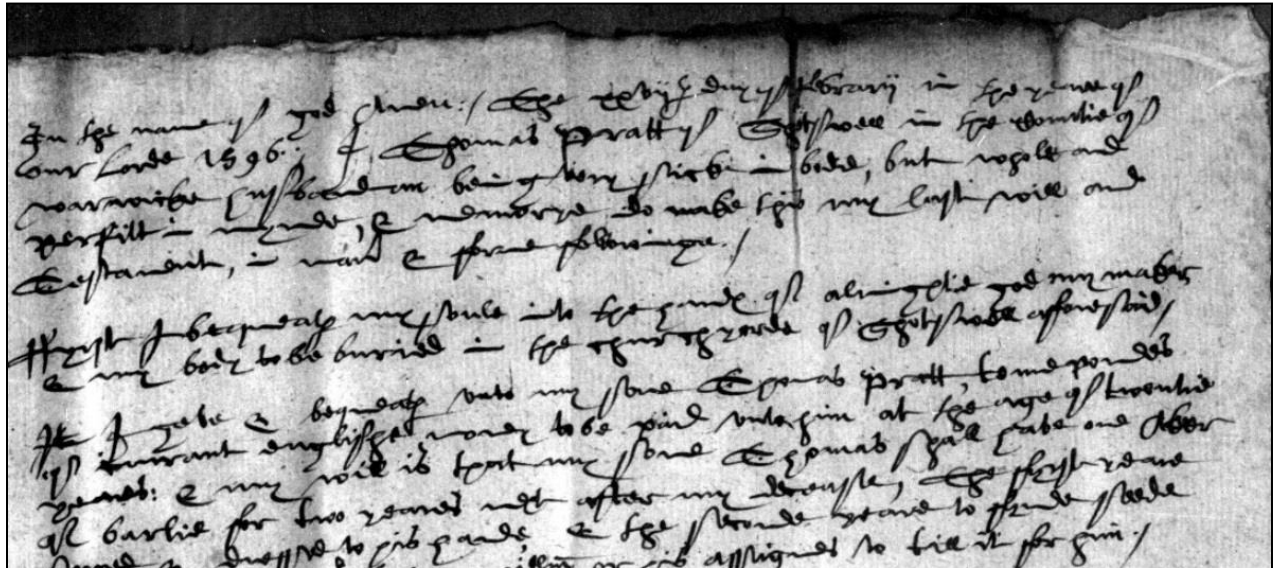 In the name of god Amen:/ The xxviijth day of februarij in the yeare of
our Lorde 1596:/ I Thomas Pratt of Shotswell in the Countie of
warwicke husbandman being very sicke in bodie, but whole and
perfitt in mynde, & memorye do make this my last will and
Testament, in maner & forme followinge./
ffyrst I bequeath my soule into the handes of almightie god my maker
& my body to be buried in the churchyarde of Shotswell afforesaid/
Itm I geve & bequeath unto my sone Thomas Pratt, tenne poundes
of currant englishe money to be paid unto him at the age of twentie
yeares: & my will is that my sone Thomas shall have one Aker
of barlie for two yeares next after my decease, The fyrst yeare
dressed to his hande, & the seconde yeare to fynde seede
or his assignes to till it for him./